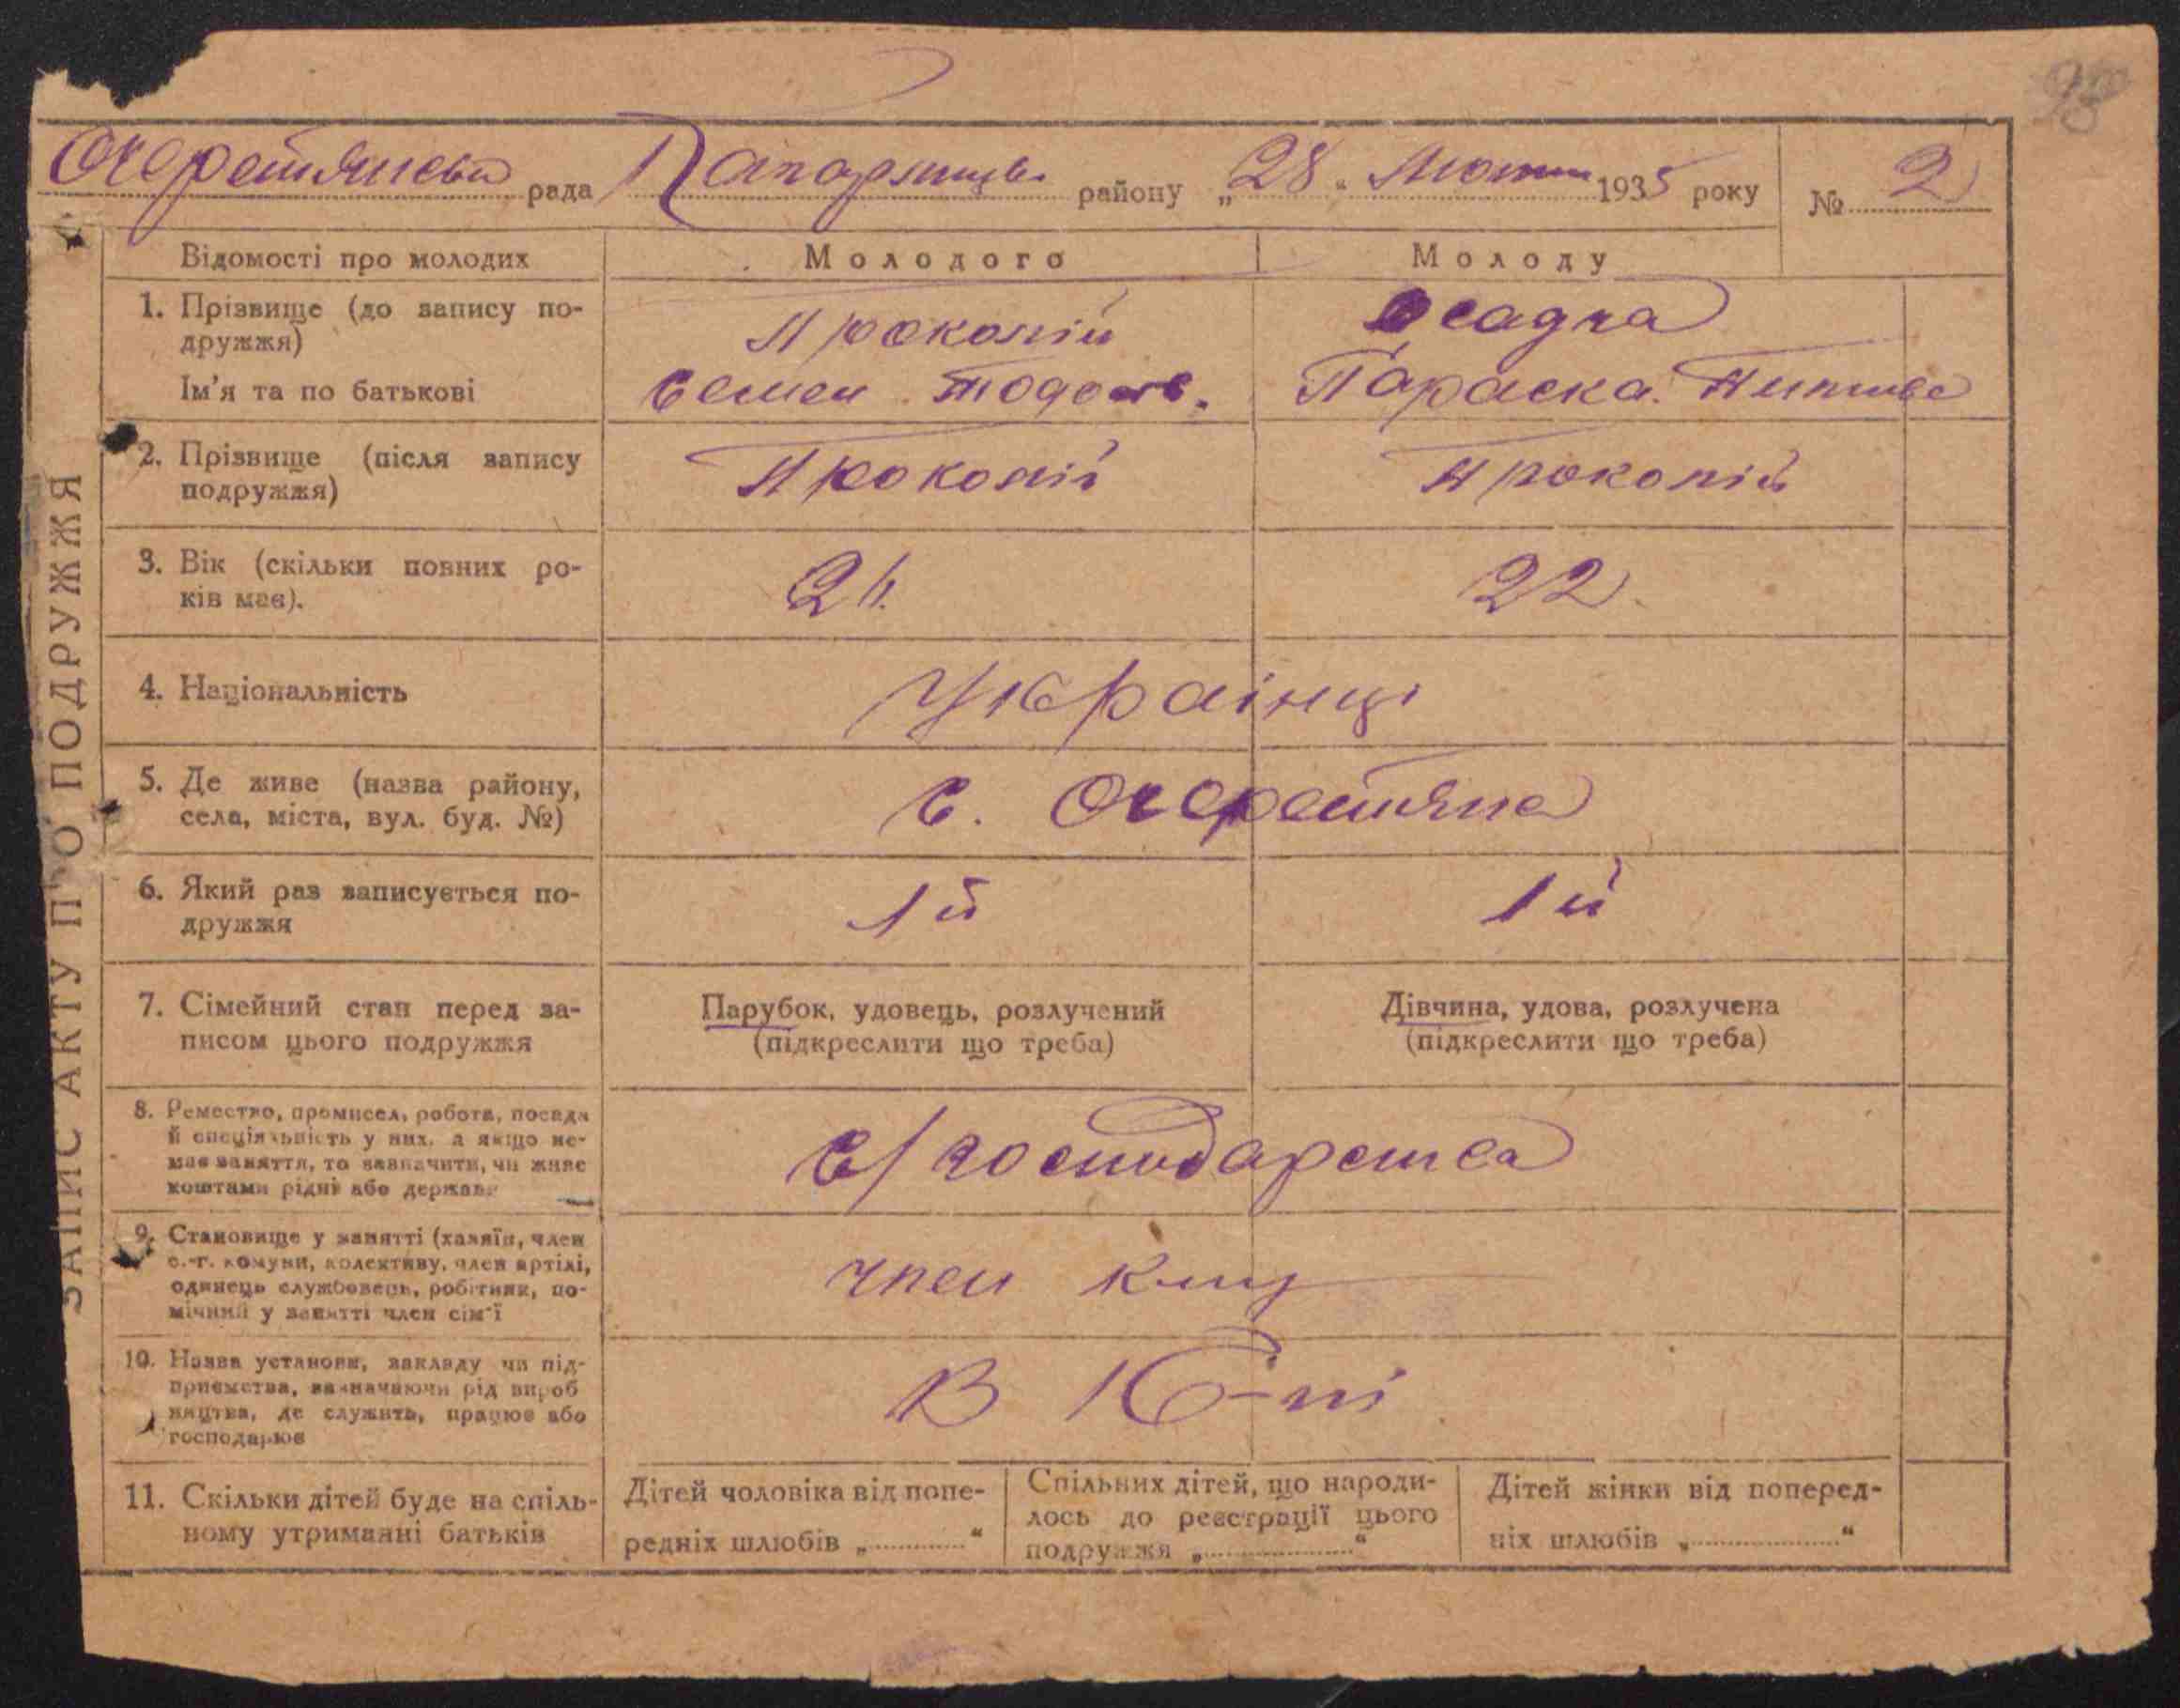 98
Очеретянська рада Катарлицьк. району „28“ Лютня 1935 року № 2
Відомості про молодих
Молодого
Молоду
1. Прізвище (до запису по-
дружжя)
Прокопій
Осадча
Ім'я та по батькові
Семен Тодосів.
Параска.
2. Прізвище (після запису
подружжя)
Прокопій
Прокопій
3. Вік (скільки повних ро-
ків має).
21.
22.
4. Національність
Українці
5. Де живе (назва району,
села, міста, вул. буд. №)
с. Очеретяна
6. Який раз записується по-
дружжя
1й
1й
7. Сімейний стан перед за-
писом цього подружжя
Парубок, удовець, розлучений
(підкреслити що треба)
Дівчина, удова, розлучена
(підкреслити що треба)
8. Ремество, промисел, робота, посада
й спеціяльність у них, а якщо не-
має заняття, то зазначити, чи живе
коштами рідні або держави
С/господарства
9. Становище у занятті (хазяїн, член
с.-г. комуни, колективу, член артілі,
одинець службовець, робітник, по-
мічний у занятті член сім'ї
член
10. Назва установи, закладу чи під-
приємства, зазначаючи рід вироб
ництва, де служить, працює або
господарює
В
11. Скільки дітей буде на спіль-
ному утриманні батьків
Дітей чоловіка від попе-
редніх шлюбів „ “
Спільних дітей, що народи-
лось до реєстрації цього
подружжя „ “
Дітей жінки від поперед-
ніх шлюбів „ “
ЗАПИС АКТУ ПРО ПОДРУЖЖЯ